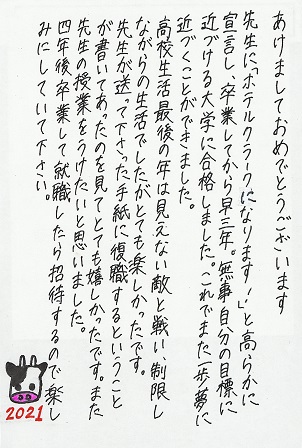 あけましておめでとうございます
先生に「ホテルクラークになります！」と高らかに
宣言し、卒業してから早三年。無事自分の目標に
近づける大学に合格しました。これでまた一歩夢に
近づくことができました。
高校生活最後の年は見えない敵と戦い、制限し
ながらの生活でしたがとても楽しかったです。
先生が送って下さった手紙に復職するということ
が書いてあったのを見てとても嬉しかったです。また
先生の授業をうけたいと思いました。
四年後卒業して就職したら招待するので楽し
みにしていて下さい。
2021